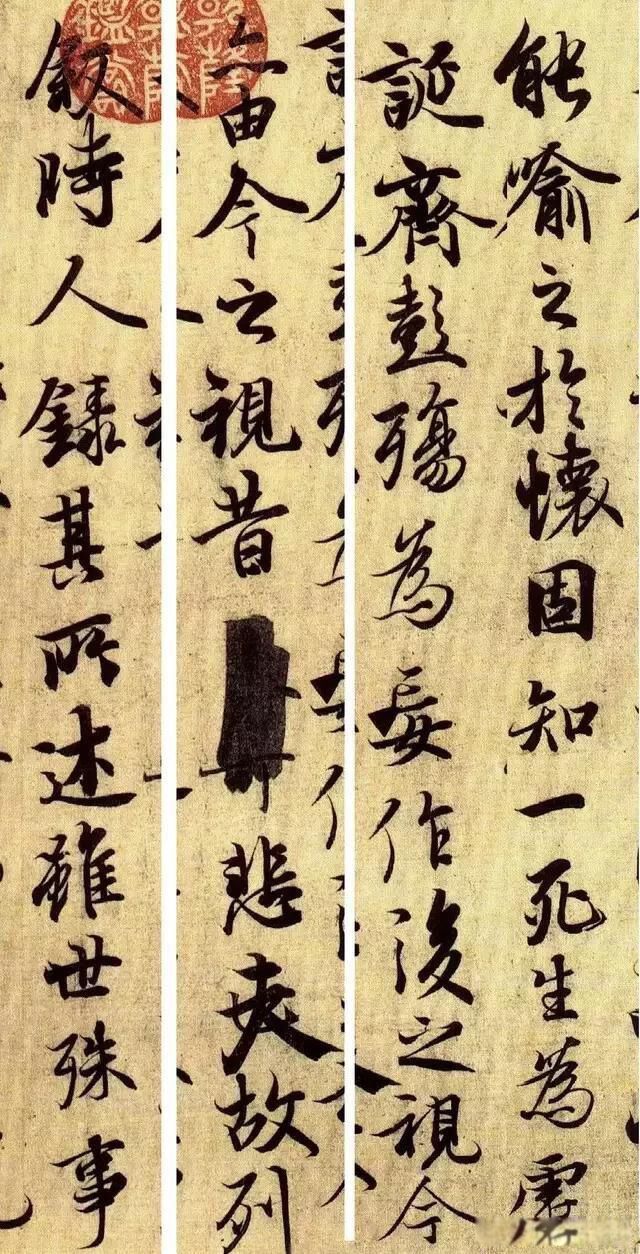 能喻之於懷固知一死生為虛
誕齊彭殤為妄作後之視今
亦由今之視昔悲夫故列
敘時人錄其所述雖世殊事